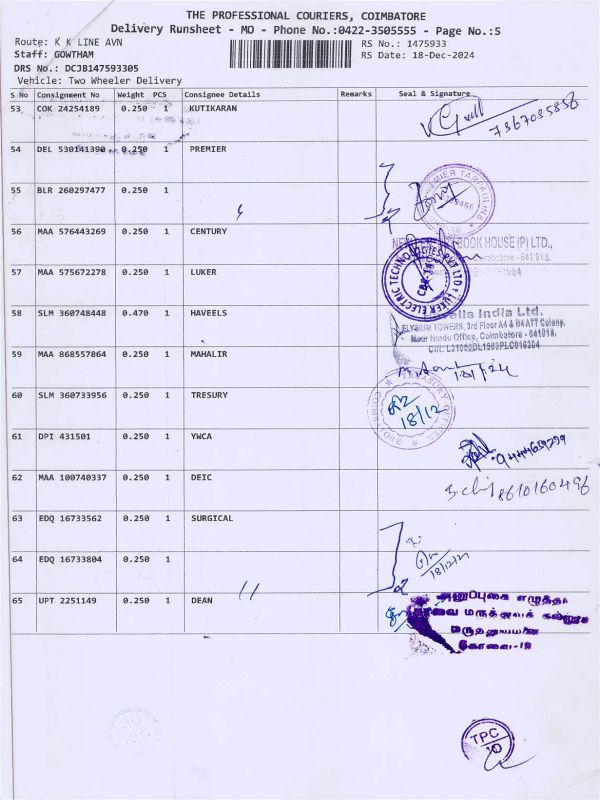 THE PROFESSIONAL COURIERS, COIMBATORE
Delivery Runsheet - MO - Phone No.:0422-3505555 - Page No.:5
Route: K K LINE AVN
RS No.: 1475933
Staff: GOWTHAM
RS Date: 18-Dec-2024
DRS No.: DCJB147593305
Vehicle: Two Wheeler Delivery
S No Consignment No Weight PCS Consignee Details Remarks Seal & Signature
53 COK 24254189 0.250 1 KUTIKARAN
7367035858
54 DEL 530141390 0.250 1 PREMIER
PREMIER TARPAULINS
55 BLR 260297477 0.250 1
56 MAA 576443269 0.250 1 CENTURY
BOOK HOUSE (P) LTD.,
Coimbatore - 641 018.
57 MAA 575672278 0.250 1 LUKER
LUKER ELECTRIC TECHNOLOGIES PVT LTD
58 SLM 360748448 0.470 1 HAVEELS
India Ltd.
ELYSIUM TOWERS, 3rd Floor A4 & B4 ATT Colony,
Near Hindu Office, Coimbatore - 641018.
59 MAA 868557864 0.250 1 MAHALIR
60 SLM 360733956 0.250 1 TRESURY
TREASURY
COIMBATORE
18/12
61 DPI 431501 0.250 1 YWCA
62 MAA 100740337 0.250 1 DEIC
8610160496
63 EDQ 16733562 0.250 1 SURGICAL
64 EDQ 16733804 0.250 1
65 UPT 2251149 0.250 1 DEAN
அனுப்புகை எழுத்தர்
கோவை மருத்துவக் கல்லூரி
மருத்துவமனை
கோவை-18
TPC